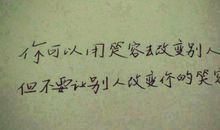 你可以用笑容去改变别人
但不要让别人改变你的笑容